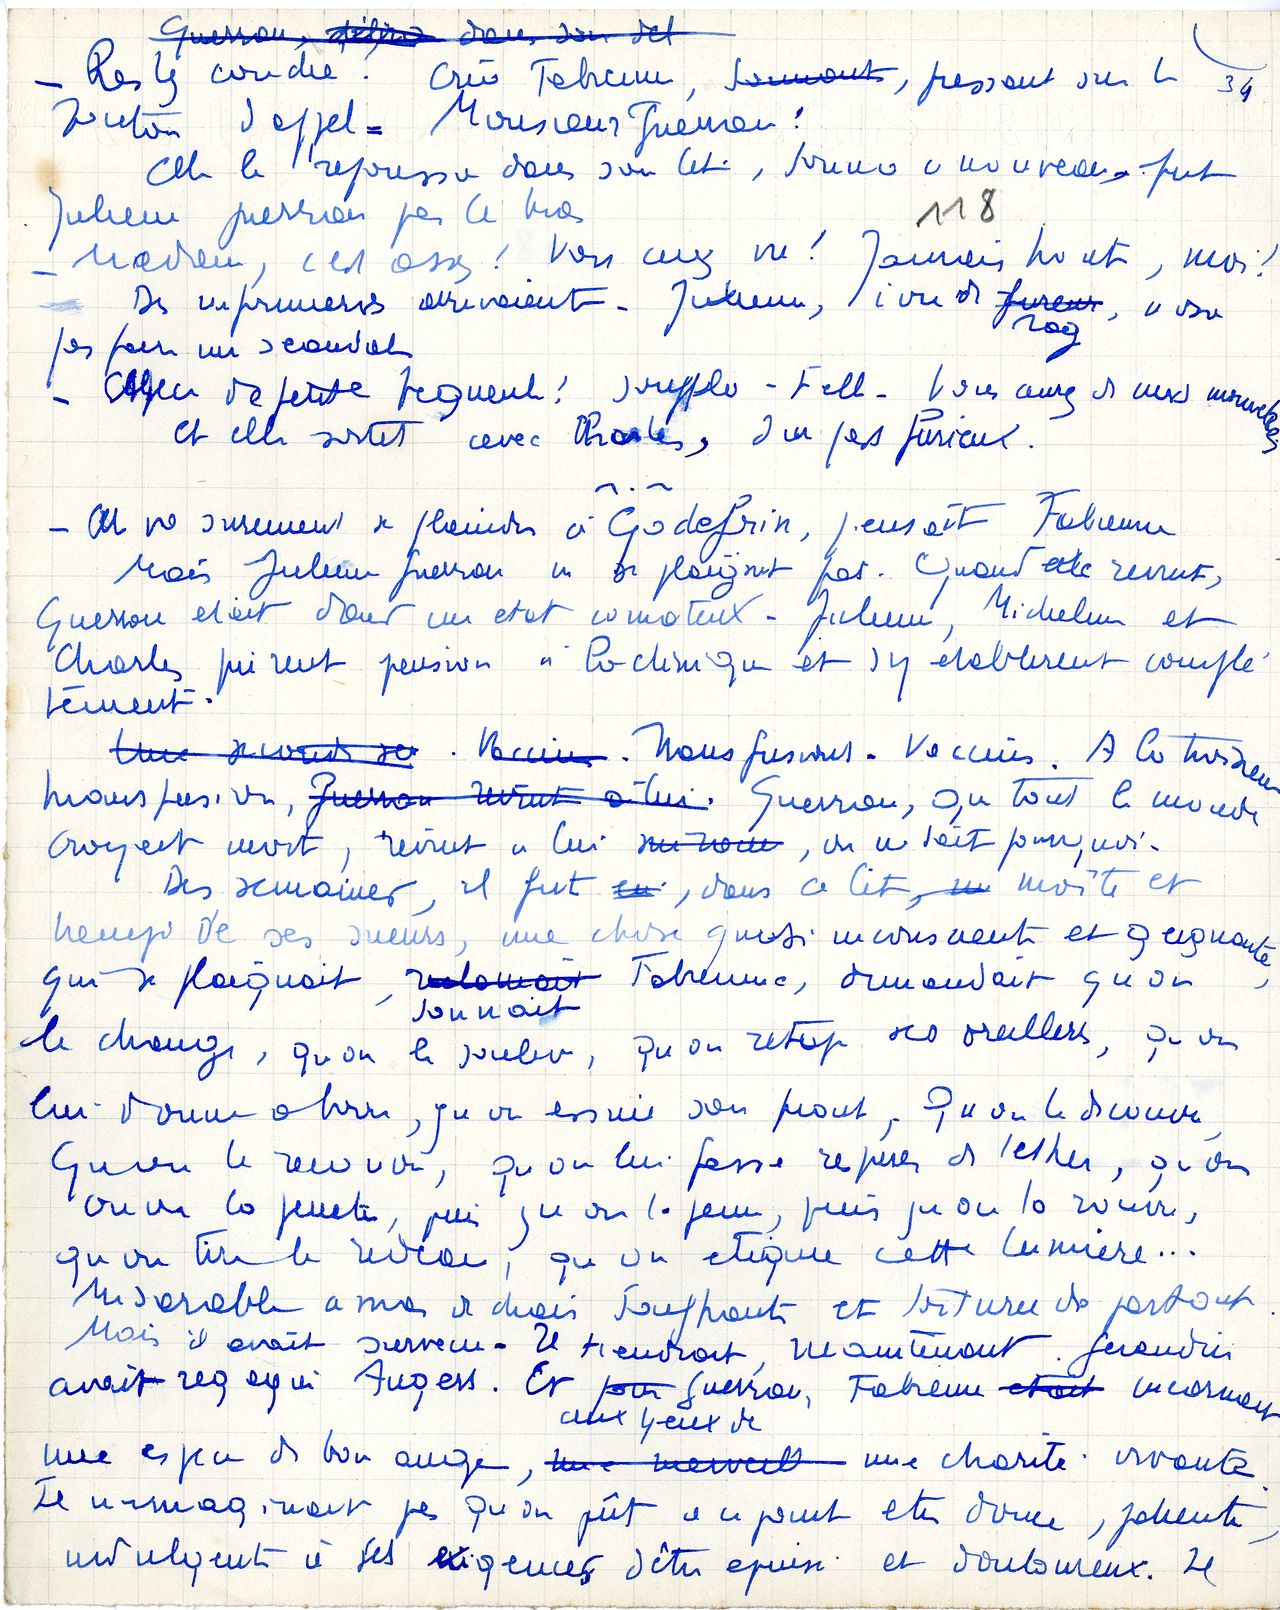 Guerran, défiré dans son del
34
— Restez couché ! cria Fabienne, sonnant, pressant sur le
bouton d'appel = Monsieur Guerran !
Elle le repoussa dans son lit, sonna à nouveau, prit
Julienne Guerran par le bras
118
— Madame, c'est assez ! Vous avez vu ! Jamais honte, moi !
Des infirmières arrivaient. Julienne, ivre de fureur, n'osa
rage
pas faire un scandale
— Espèce de petite traînée ! souffla-t-elle. Vous aurez de mes nouvelles
Et elle sortit avec Charles, d'un pas furieux.
— Elle va sûrement se plaindre à Godefrin, pensait Fabienne
Mais Julienne Guerran ne se plaignit pas. Quand elle revint,
Guerran était dans un état comateux. Julienne, Micheline et
Charles prirent pension à la clinique et s'y établirent complè
tement.
Une seconde . Vaccins . Transfusions. Vaccins. A la troisième
transfusion, Guerran revint à lui. Guerran, que tout le monde
croyait mort, revint à lui , on ne sait pourquoi.
Des semaines, il fut en , dans ce lit, moite et
trempé de ses sueurs, une chose quasi inconsciente et geignante,
qui se plaignait, réclamait Fabienne, demandait qu'on
sonnait
le change, qu'on le soulève, qu'on retape ses oreillers, qu'on
lui donne à boire, qu'on essuie son front, qu'on le découvre,
qu'on le recouvre, qu'on lui fasse respirer de l'éther, qu'on
ouvre la fenêtre, puis qu'on la ferme, puis qu'on la rouvre,
qu'on tire le rideau, qu'on éteigne cette lumière...
Misérable amas de chairs souffrante et torturée de partout.
Mais il avait survécu. Il tiendrait, maintenant. Géraudin
avait regagné Angers. Et pour Guerran, Fabienne était incarnait
aux yeux de
une espèce de bon ange, une merveille une charité vivante.
Il n'imaginait pas qu'on pût à ce point être douce, patiente,
indulgente à ses exigences d'être épuisé et douloureux. Il